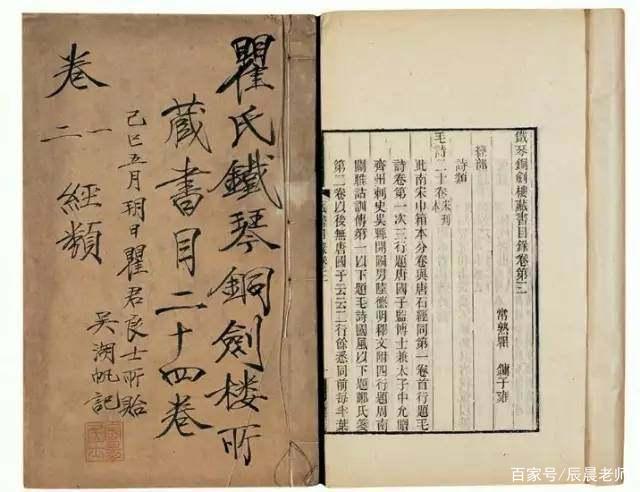 瞿氏鐵琴銅劍樓所
藏書目二十四卷
卷一 二 經類
己巳五月朔日瞿君良士所貽
吳湖帆記
鐵琴銅劍樓藏書目錄卷第三
常熟瞿 鏞子雍
經部
詩類
毛詩二十卷宋刊本
此南宋巾箱本分卷與唐石經同第一卷首行題毛
詩卷第一次三行題唐國子監博士兼太子中允贈
齊州刺史吳縣開國男陸德明釋文附四行題周南
關雎詁訓傳第一以下題毛詩國風以下題鄭氏箋
第二卷以後無唐國子云云二行餘悉同前每半葉
百家号/辰晨老师